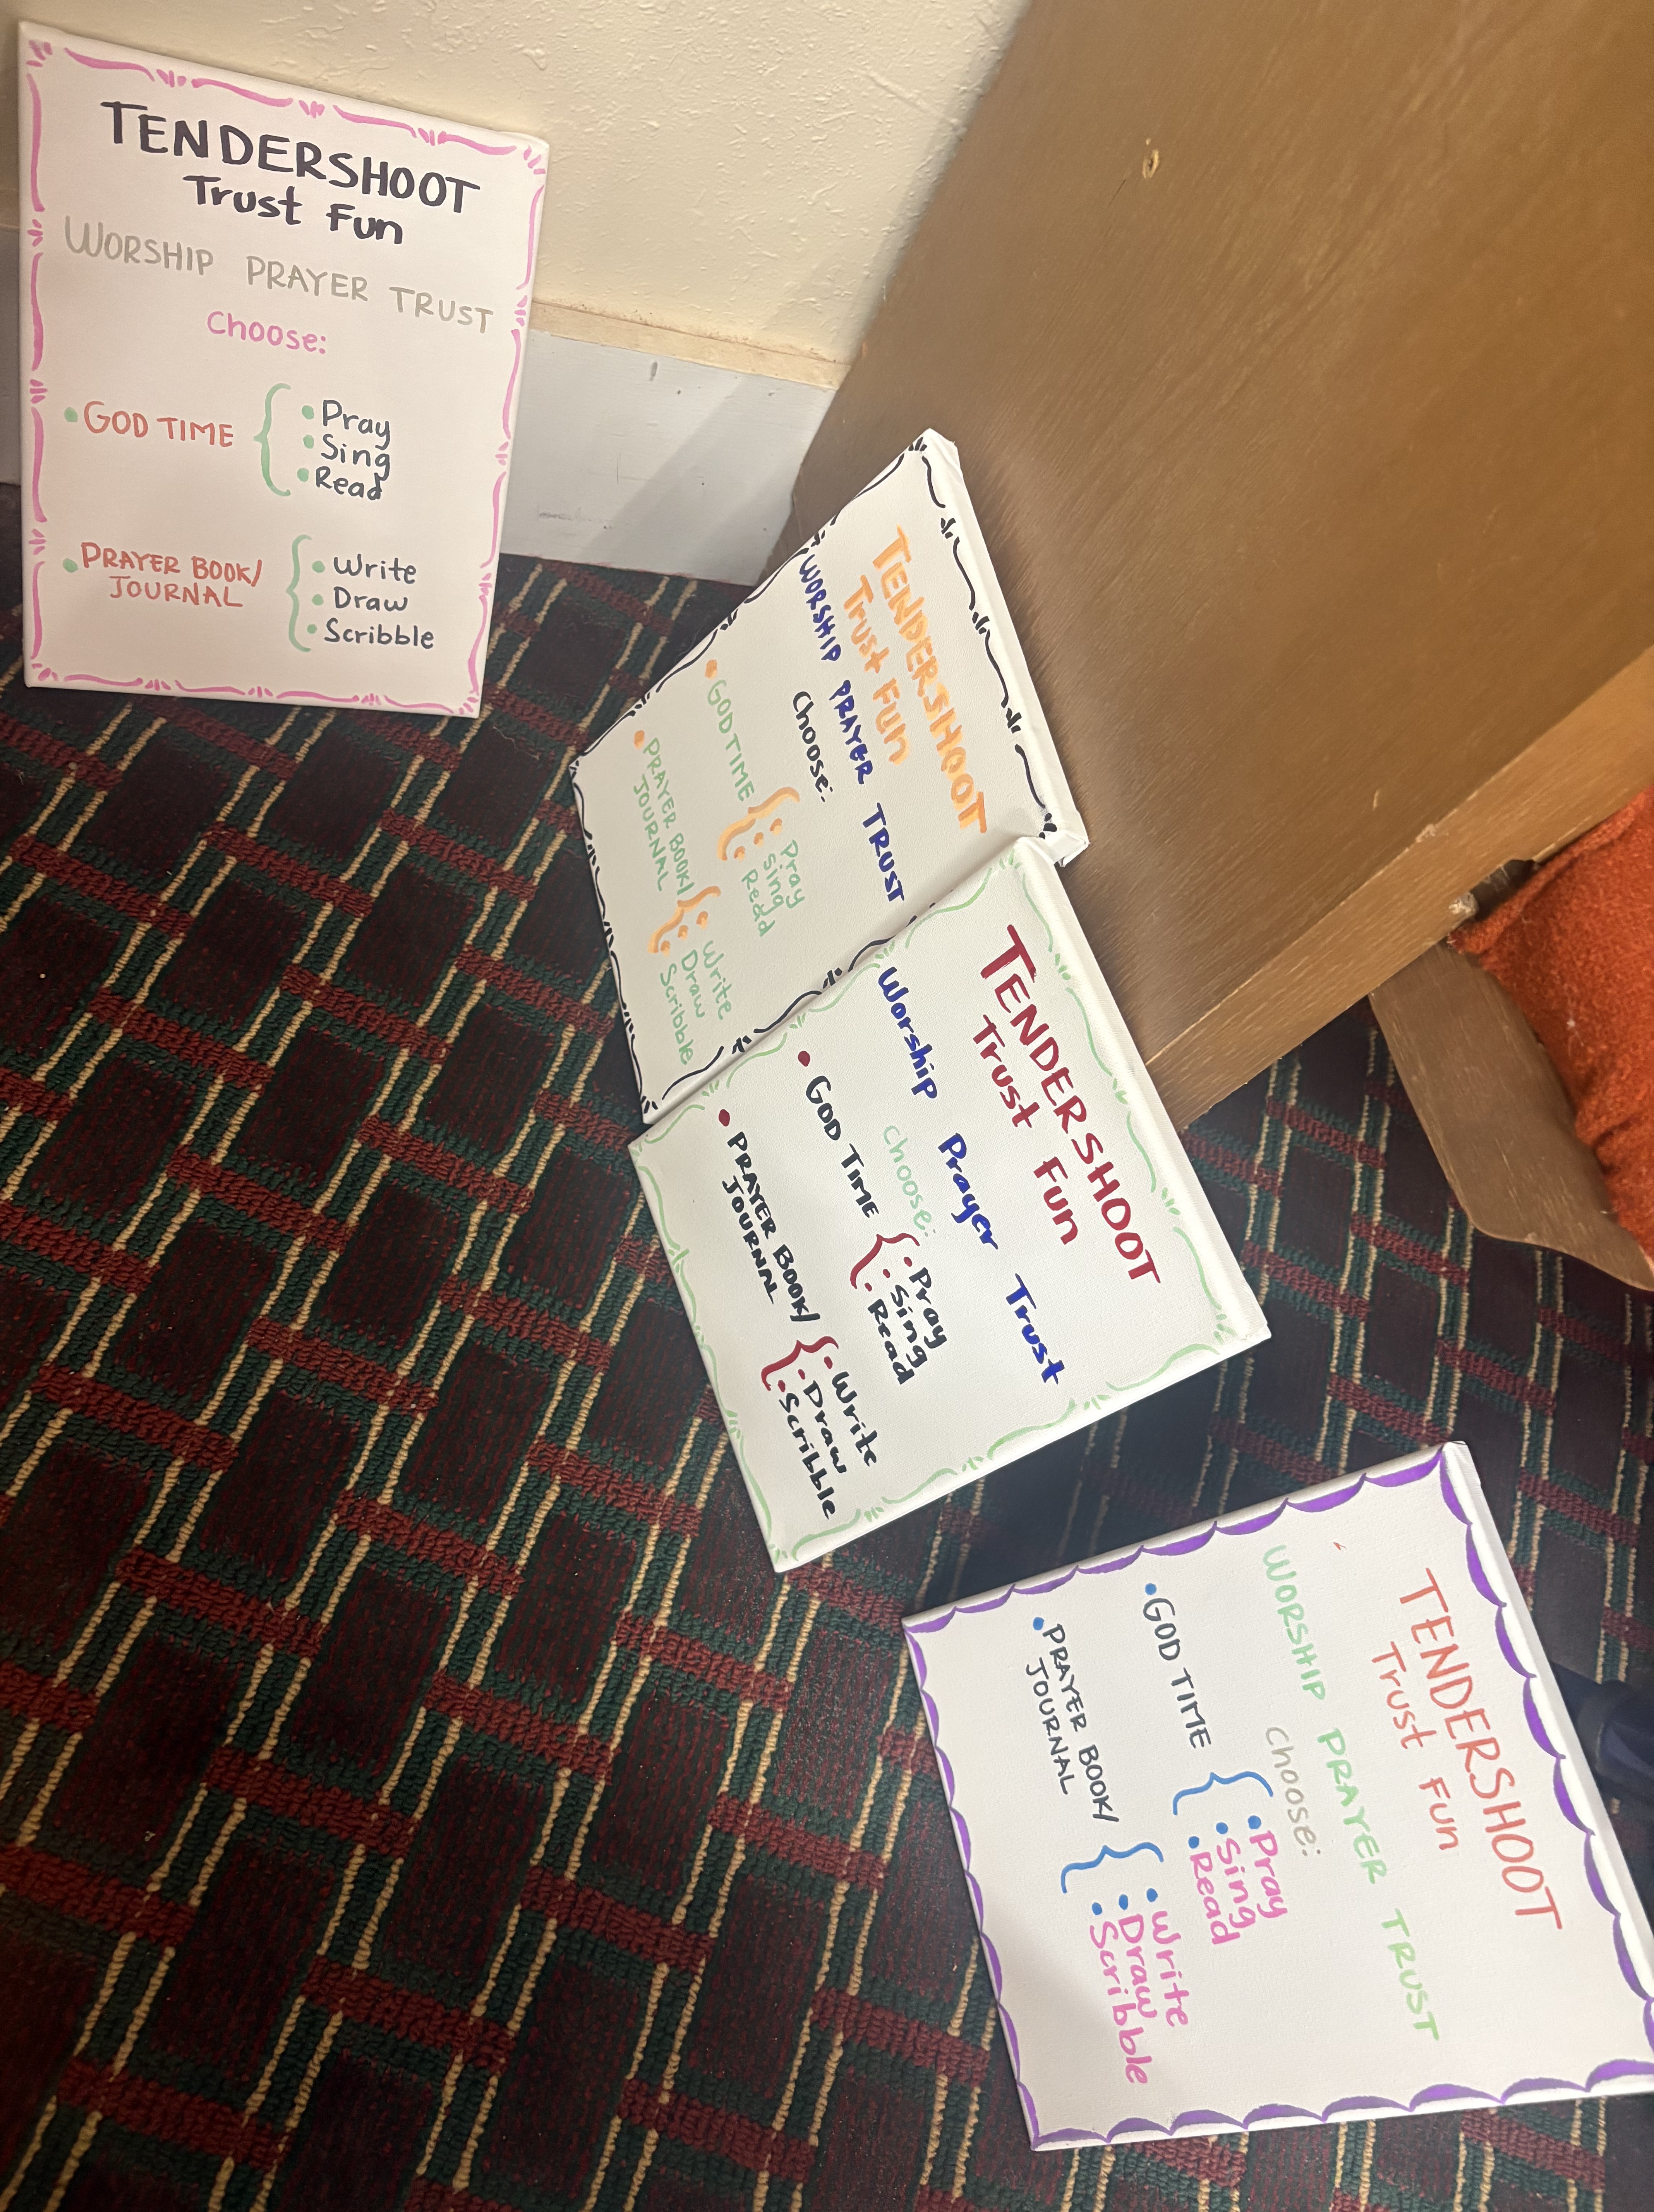 TENDERSHOOT
Trust Fun
WORSHIP PRAYER TRUST
Choose:
• GOD TIME { • Pray
• Sing
• Read
• PRAYER BOOK/
JOURNAL { • Write
• Draw
• Scribble
TENDERSHOOT
Trust Fun
WORSHIP PRAYER TRUST
Choose:
• GOD TIME { • Pray
• Sing
• Read
• PRAYER BOOK/
JOURNAL { • Write
• Draw
• Scribble
TENDERSHOOT
Trust Fun
Worship Prayer Trust
Choose:
• GOD TIME { • Pray
• Sing
• Read
• PRAYER BOOK/
JOURNAL { • Write
• Draw
• Scribble
TENDERSHOOT
Trust Fun
WORSHIP PRAYER TRUST
Choose:
• GOD TIME { • Pray
• Sing
• Read
• PRAYER BOOK/
JOURNAL { • Write
• Draw
• Scribble